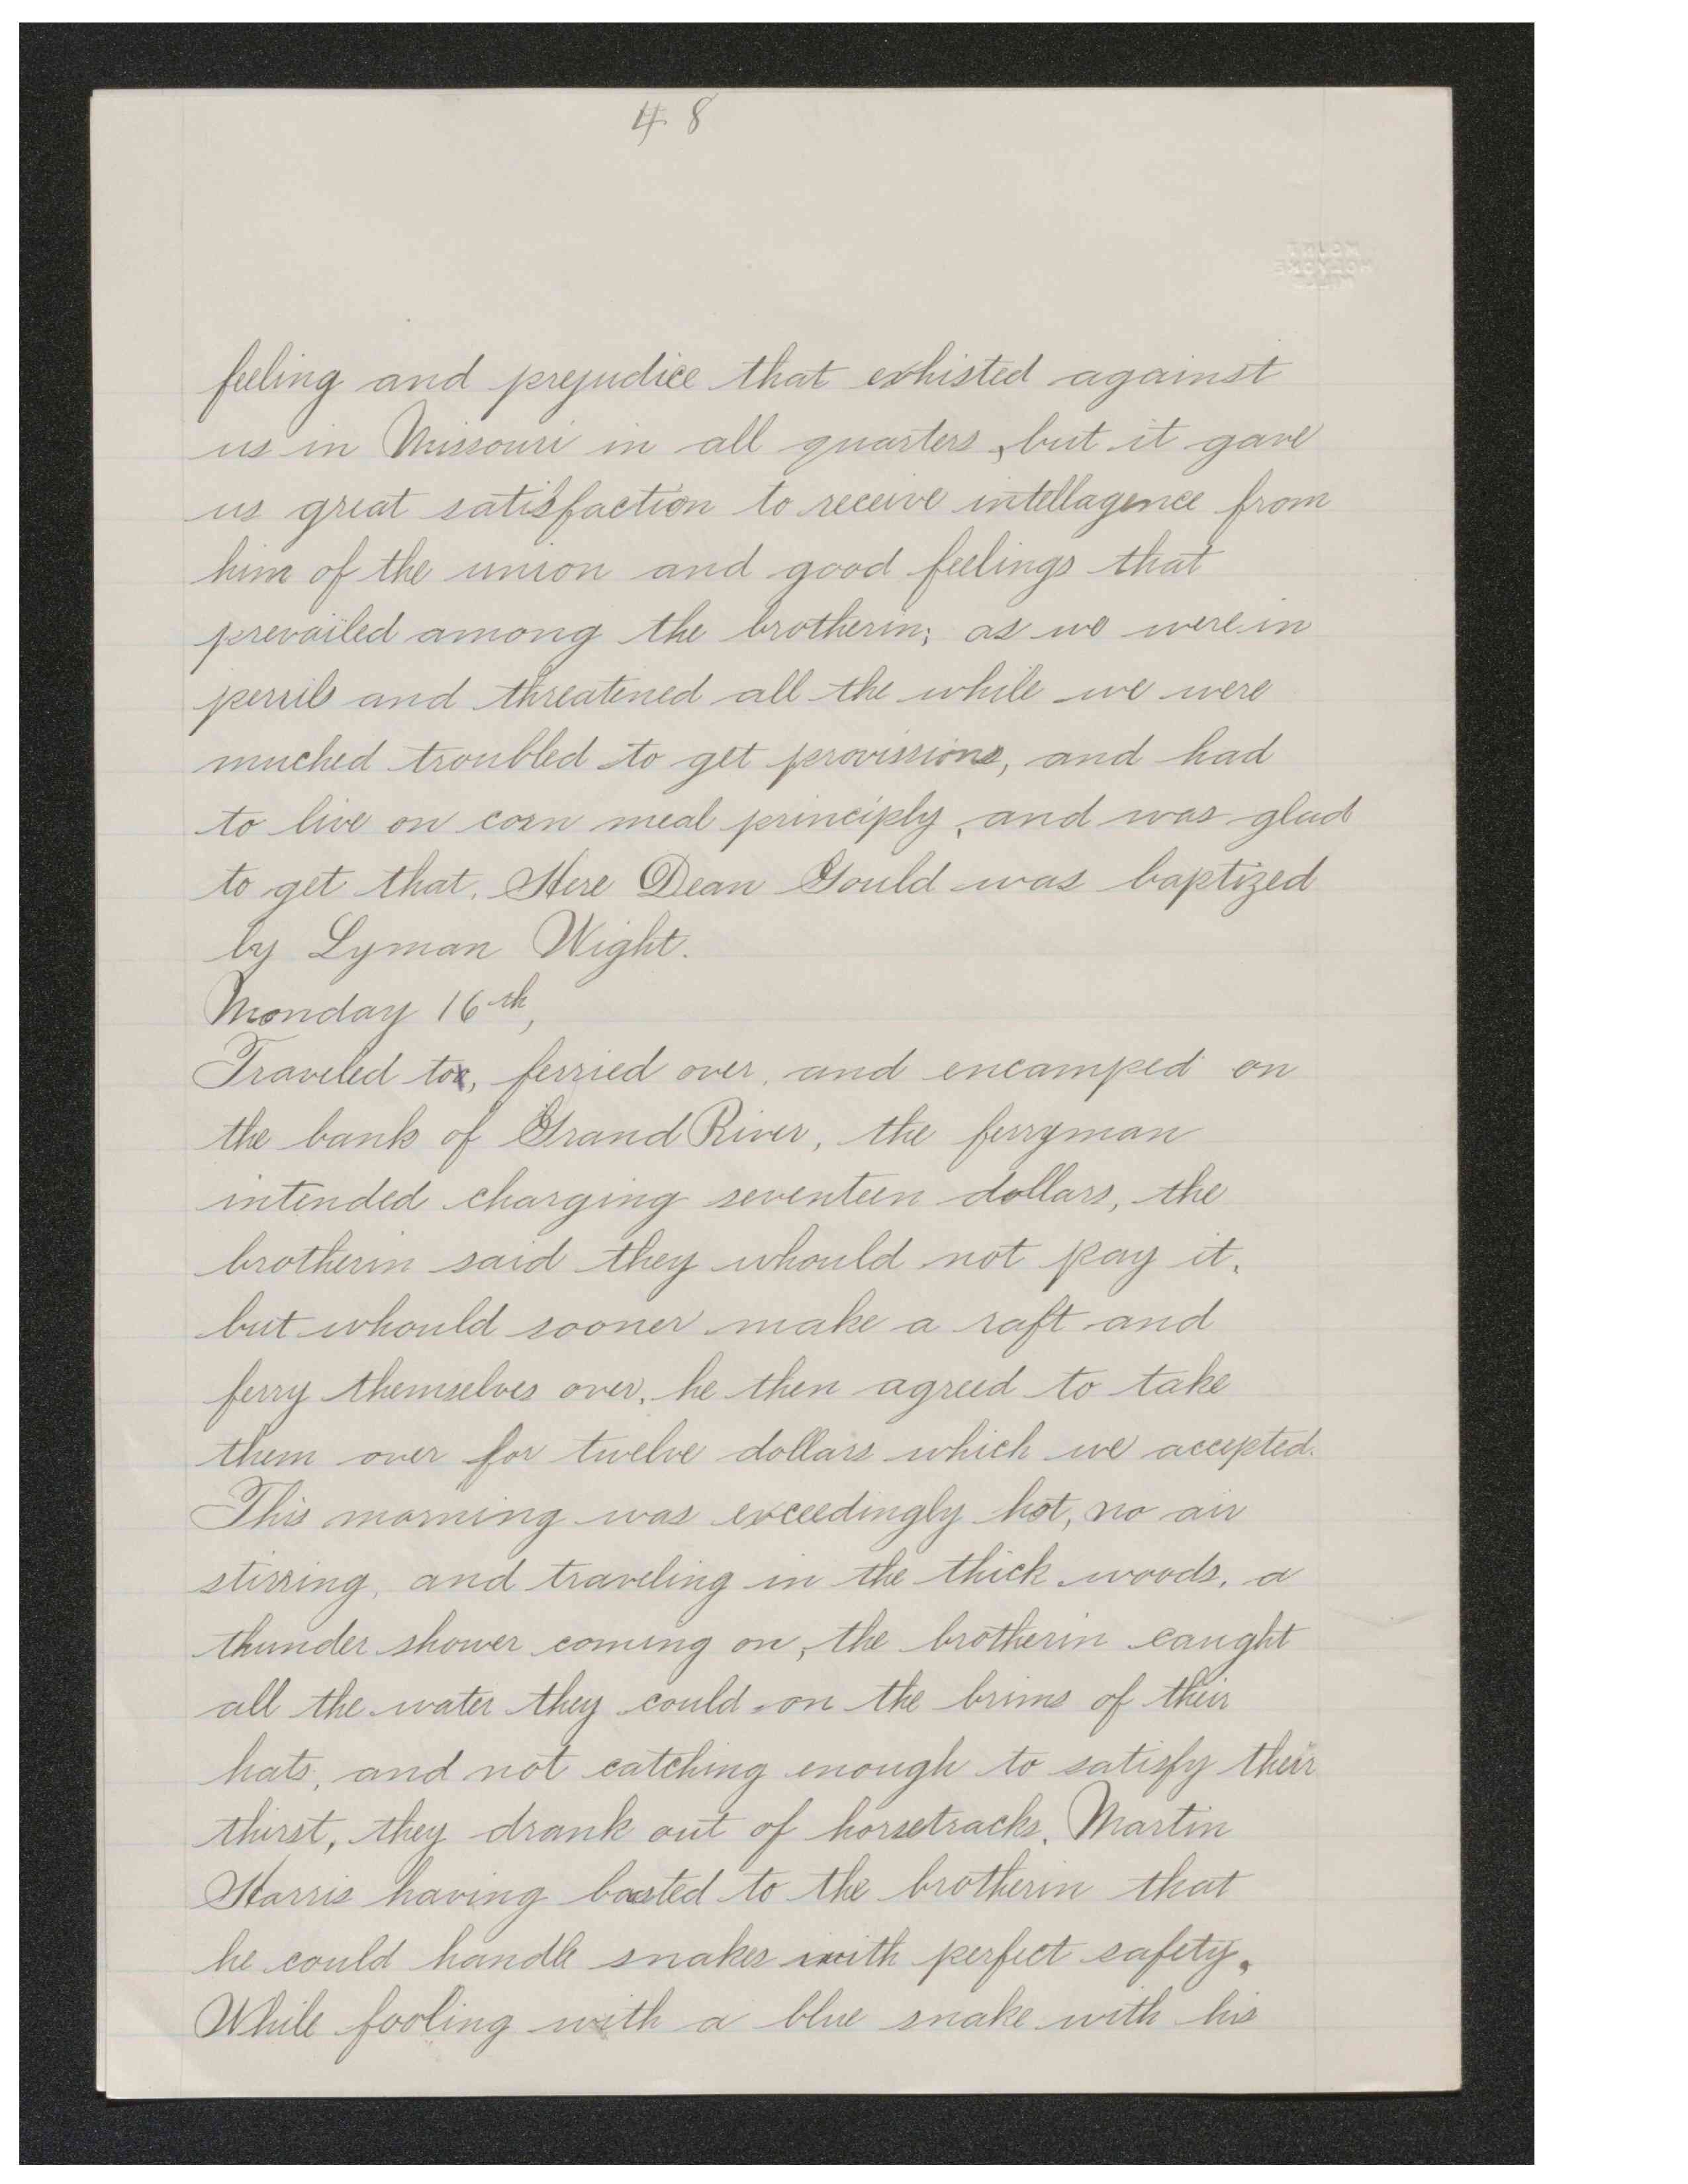 48
MOUNT
HOLYOKE
feeling and prejudice that exhisted against
us in Missouri in all quarters, but it gave
us great satisfaction to receive intellagence from
him of the union and good feelings that
prevailed among the brotherin; as we were in
perrils and threatened all the while we were
muched troubled to get provissions, and had
to live on corn meal principly, and was glad
to get that. Here Dean Gould was baptized
by Lyman Wight.
Monday 16th,
Traveled to, ferried over, and encamped on
the bank of Grand River, the ferryman
intended charging seventeen dollars, the
brotherin said they whould not pay it,
but whould sooner make a raft and
ferry themselves over, he then agreed to take
them over for twelve dollars which we accepted.
This morning was exceedingly hot, no air
stirring, and traveling in the thick woods, a
thunder shower coming on, the brotherin caught
all the water they could on the brims of their
hats, and not catching enough to satisfy their
thirst, they drank out of horsetracks. Martin
Harris having boasted to the brotherin that
he could handle snakes with perfect safety.
While fooling with a blue snake with his